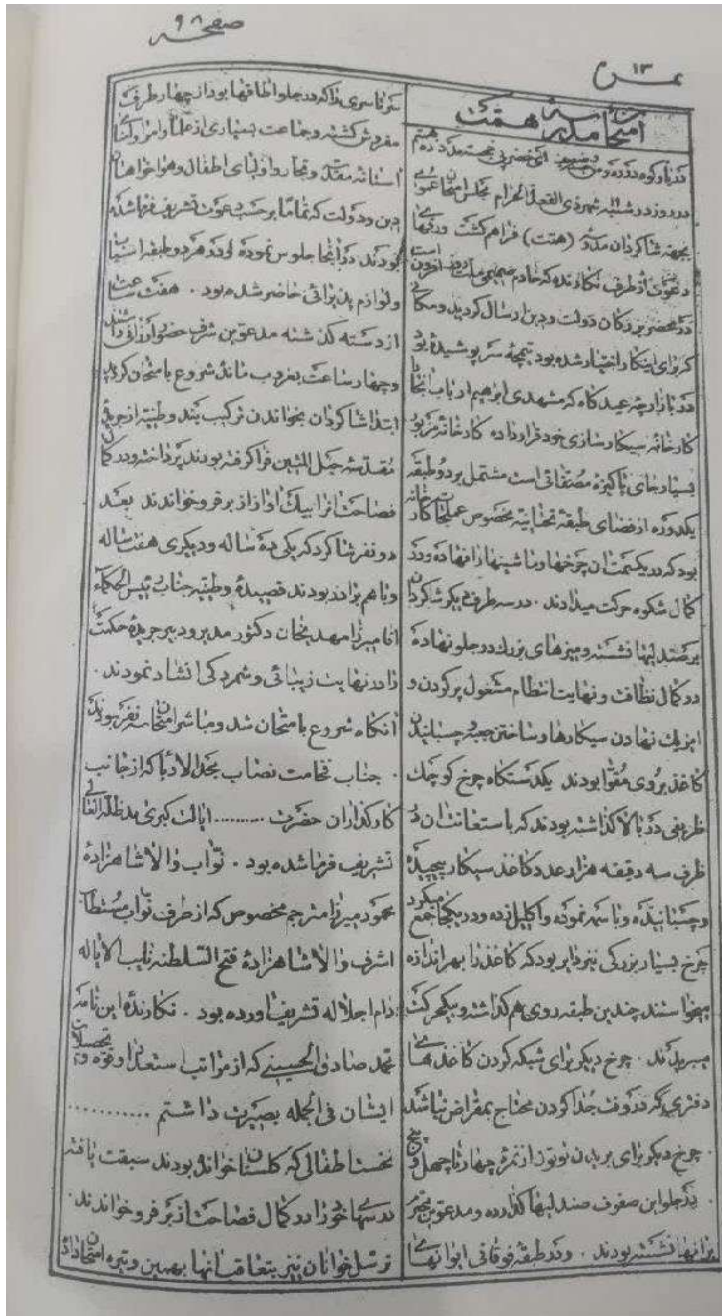 صفحه ۹۸
نمره ۱۳
امتحان مدرسه هفت
در روز دوشنبه شهر ذی القعدة الحرام مجلس امتحان عمومی
بجهة شاگردان مدرسه (هفت) فراهم گشت ورقهای
دعوتی از طرف نگارنده که خادم صمیمی ملت است
در محضر بزرگان دولت و دین ارسال گردید و مکانی
که برای اینکار اختیار شده بود تیمچه سر پوشیدۀ بود
در بازارچه عیدگاه که مشهدی ابراهیم ارباب آنجا
کارخانه سیکار سازی خود قرار داده کارخانه مزبور
بسیار جای پاکیزه مصفائی است مشتمل بر دو طبقه
یکدوره از فضای طبقه تحتانیه مخصوص عملیات کارخانه
بود که در یکسمت آن چرخها و ماشینها را نهاده و در
کمال شکوه حرکت میدادند . در سه طرف دیگر شاگردان
بر صندلیها نشسته و میزهای بزرگ در جلو نهاده
در کمال نظافت و نهایت انتظام مشغول پر کردن و
امزیک نهادن سیکارها و ساختن جعبه و چسبانیدن
کاغذ بروی مقوا بودند یکدستگاه چرخ کوچک
ظریفی در بالا گذاشته بودند که باستعانت آن در
ظرف سه دقیقه هزار عدد کاغذ سیکار پیچیده
و چسبانیده و باسمه نموده و اکلیل زده و در یکجا جمع میکرد
چرخ بسیار بزرگی نیز دایر بود که کاغذ را بهر اندازه
میخواستند چندین طبقه روی هم گذاشته و بیکحرکت
میبریدند . چرخ دیگر برای شبکه کردن کاغذ های
دفتری که در وقت جدا کردن محتاج بمقراض نباشد
. چرخ دیگر برای بریدن توتون از نمره چهار تا چهل و پنج
. در جلو این صفوف صندلیها گذارده و مدعوین نیز
بر آنها نشسته بودند . و در طبقه فوقانی ایوانهای
سرتاسری را که در جلو اطاقها بود از چهار طرف
مفروش گشته و جماعت بسیاری از علما و امرا و امنای
آستانه مقدسه و تجار و اولیای اطفال و هواخواهان
دین و دولت که تماما بر حسب دعوت تشریف فرما شده
بودند در آنجا جلوس نموده و در هر دو طبقه اسباب
و لوازم پذیرائی حاضر شده بود . هفت ساعت
از دسته گذشته مدعوین شرف حضور ارزانی داشتند
و چهار ساعت بغروب مانده شروع بامتحان گردید
ابتدا شاگردان بخواندن ترکیب بند وطنیه از جریده
مقدسه حبل المتین فرا گرفته بودند پرداخته و در کمال
فصاحت آنرا بیک آواز از بر فرو خواندند بعد
دو نفر شاگرد که یکی ده ساله و دیگری هفت ساله
و با هم برادر بودند قصیدۀ وطنیه جناب رئیس الحکماء
آقا میرزا مهدیخان دکتور مدیر و دبیر جریدۀ حکمت
را در نهایت زیبائی و شمردگی انشاد نمودند .
آنگاه شروع بامتحان شد و مباشر امتحان سه نفر بودند
. جناب فخامت نصاب مجد الادبا که از جانب
کارگذاران حضرت .......... ایالت کبری مد ظله العالی
تشریف فرما شده بود . نواب والا شاهزادۀ
محمود میرزا مترجم مخصوص که از طرف نواب مستطاب
اشرف والا شاهزادۀ فتح السلطنه نایب الایاله
دام اجلاله تشریف آورده بود . نگارندۀ این نامه
محمد صادق الحسینی که از مراتب استعداد و قوه و تحصیلات
ایشان فی الجمله بصیرت داشتم ...........
نخست اطفالی که گلستان خوانده بودند سبقت یافته
درسهای خود را در کمال فصاحت از بر فرو خواندند .
ترسل خوانان نیز بتعاقب آنها بهمین وتیره امتحان داد